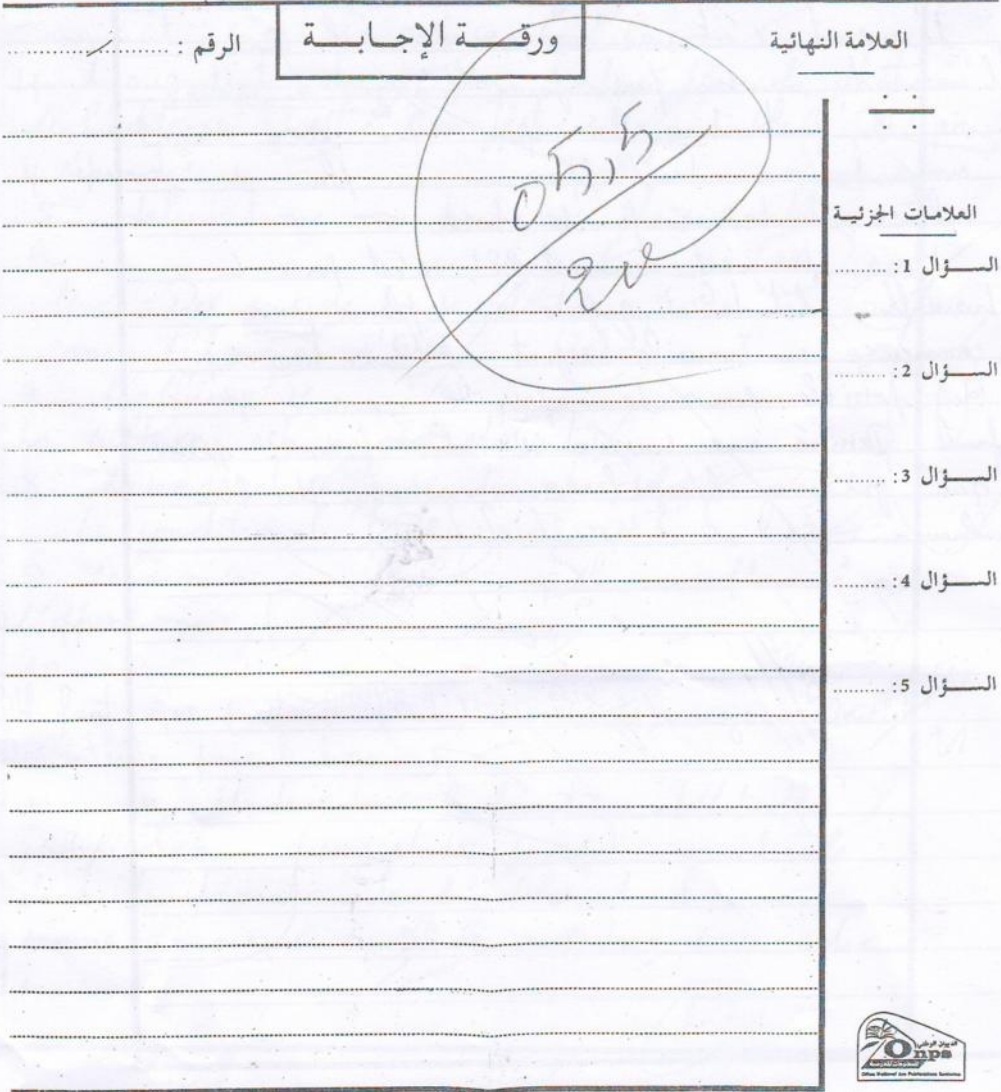 العلامة النهائية
ورقـــة الإجـابـــة
الرقم : ....................
العلامات الجزئية
الســـؤال 1: ........
05,5
20
الســـؤال 2: ........
الســـؤال 3: ........
الســـؤال 4: ........
الســـؤال 5: ........
Onps